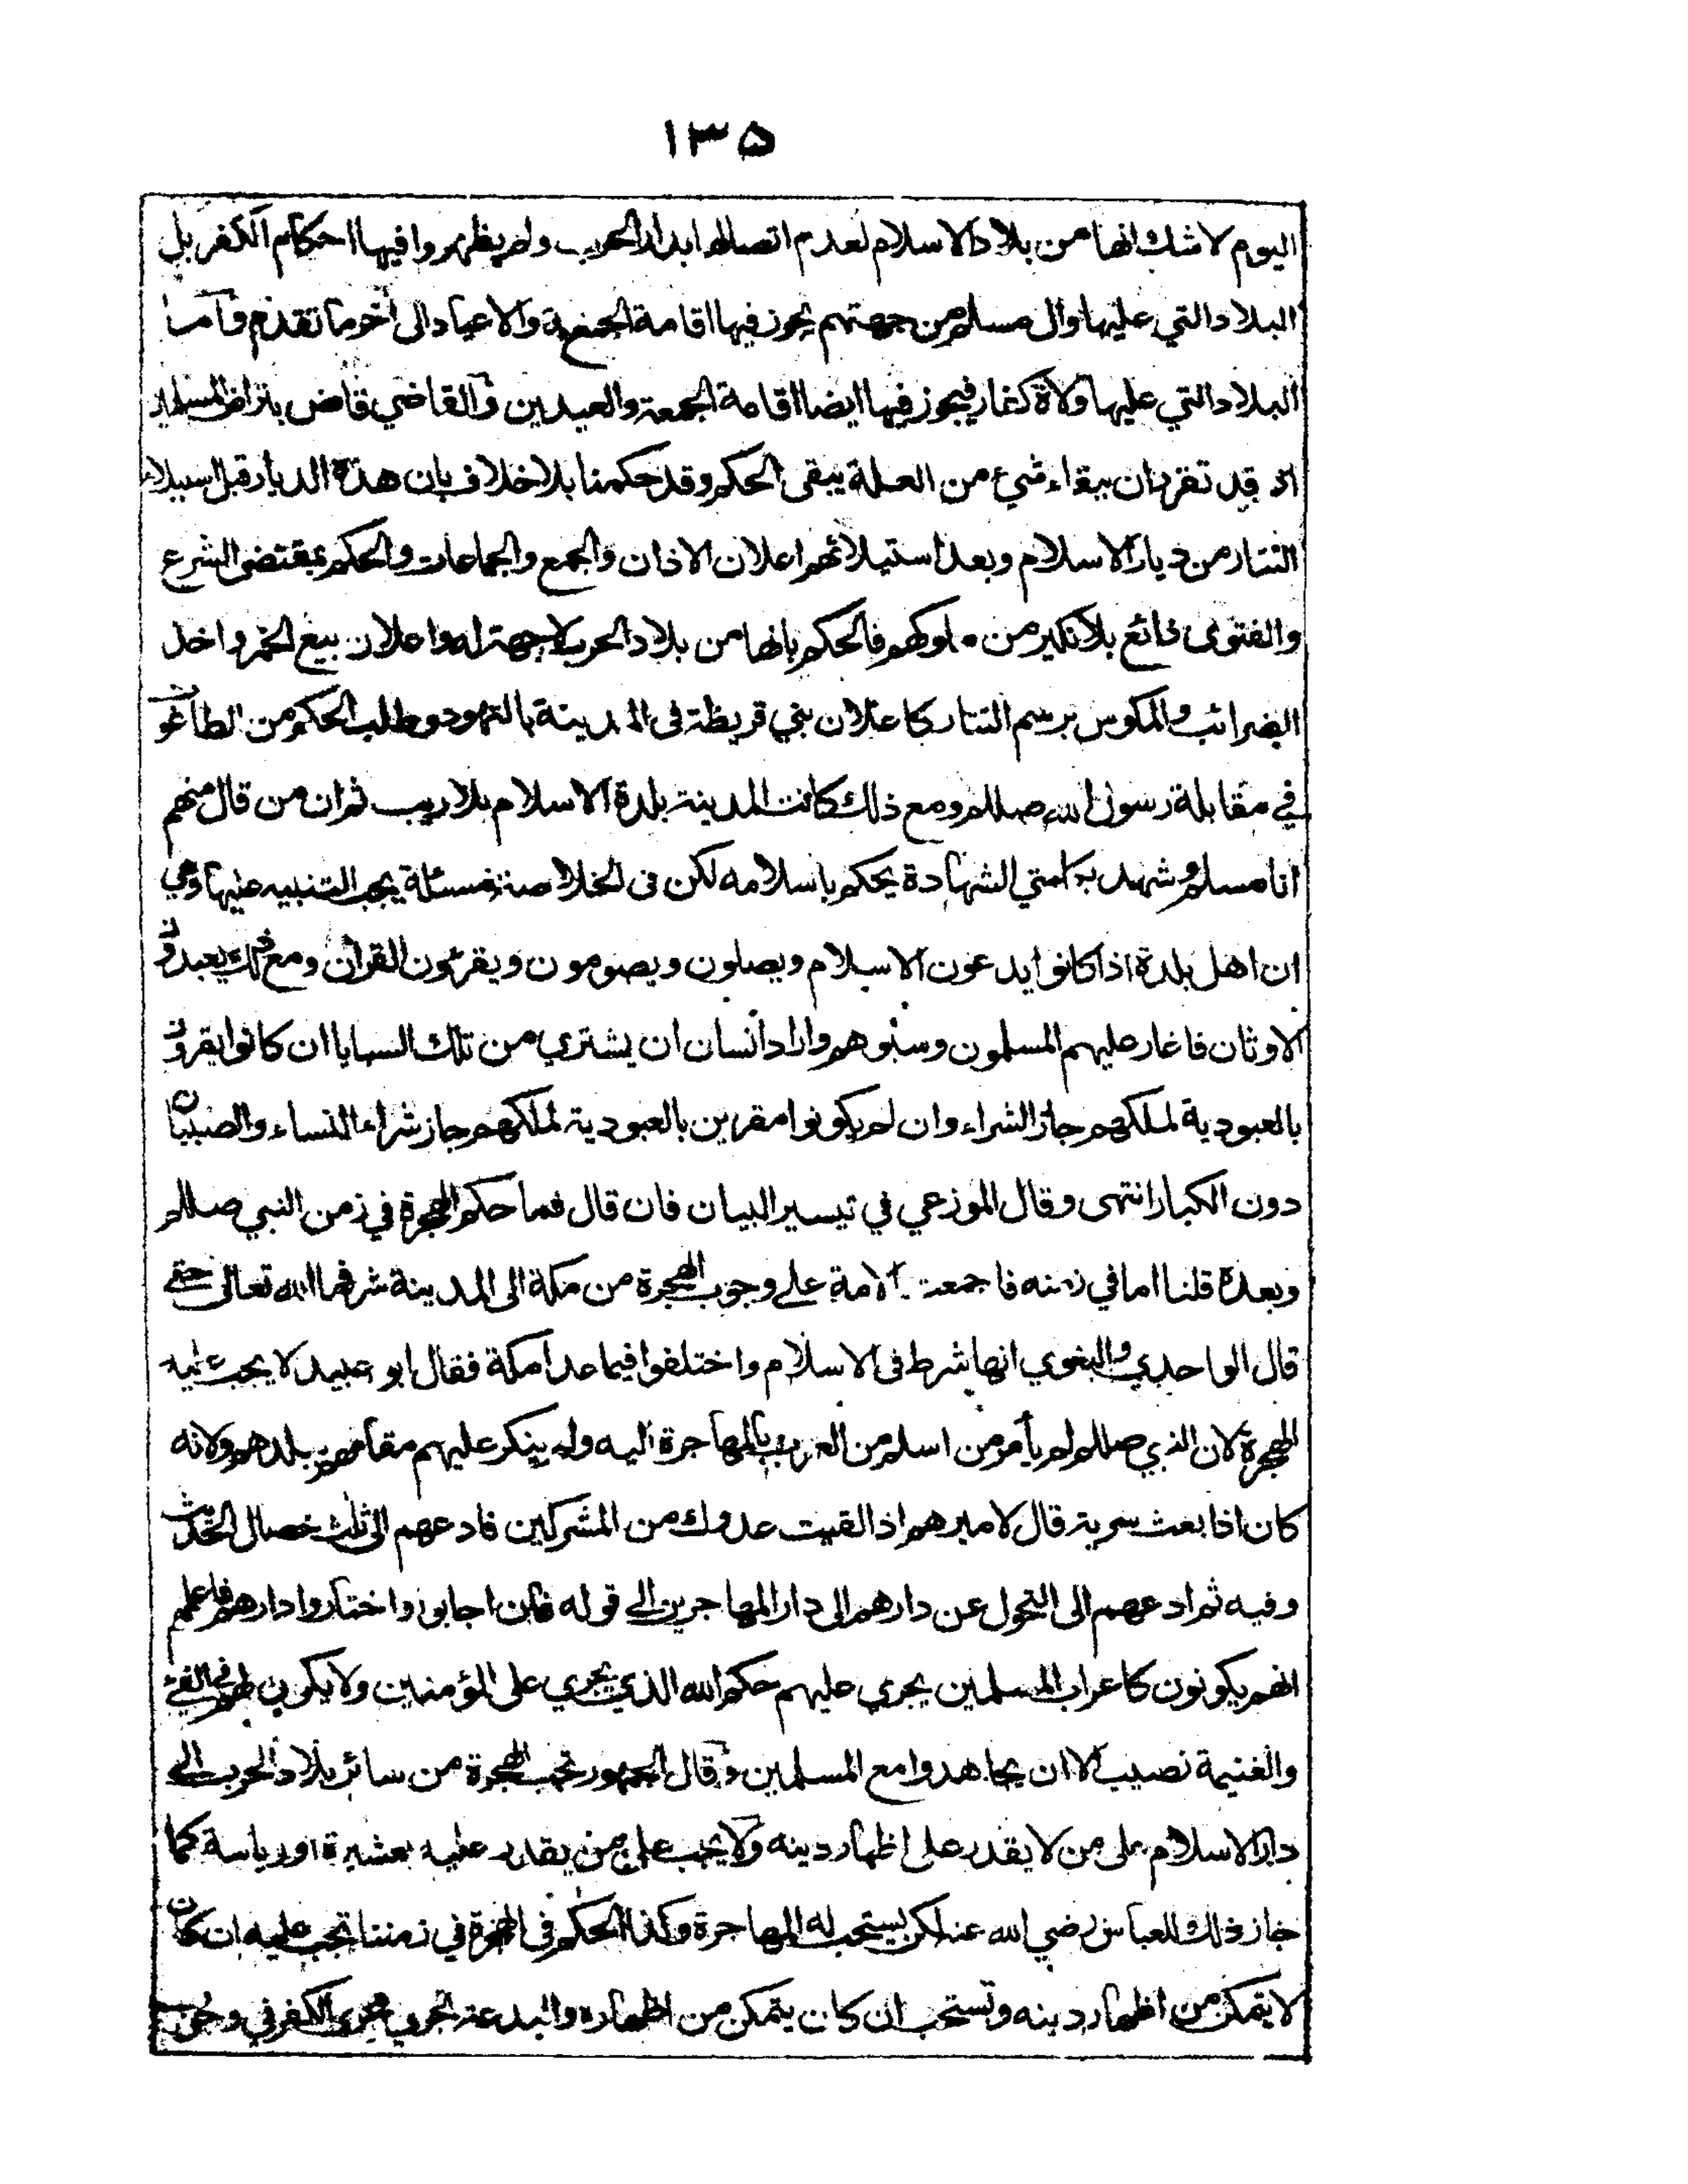 ١٣٥
اليوم لا شك انها من بلاد الاسلام لعدم اتصالها بدار الحرب ولم يظهروا فيها احكام الكفر بل
البلاد التي عليها وال مسلم من جهتهم يجوز فيها اقامة الجمعة والاعياد الى اخر ما تقدم واما
البلاد التي عليها ولاة كفار فيجوز فيها ايضا اقامة الجمعة والعيدين والقاضي قاض بتراض المسلمين
اذ قد تقرر ان ببقاء شيء من العلة يبقى الحكم وقد حكمنا بلا خلاف بان هذه الديار قبل استيلاء
التتار من ديار الاسلام وبعد استيلائهم اعلان الاذان والجمع والجماعات والحكم بمقتضى الشرع
والفتوى ذائع بلا نكير من ملوكهم فالحكم بانها من بلاد الحرب لا جهة له واعلان بيع الخمر واخذ
الضرائب والمكوس برسم التتار كاعلان بني قريظة فى المدينة بالتهود وطلب الحكم من الطاغو
في مقابلة رسول الله صللم ومع ذلك كانت المدينة بلدة الاسلام بلا ريب ثم ان من قال منهم
انا مسلم وشهد بكلمتي الشهادة يحكم باسلامه لكن فى الخلاصة مسئلة يجب التنبيه عليها وهي
ان اهل بلدة اذا كانوا يدعون الاسلام ويصلون ويصومون ويقرئون القران ومع ذلك يعبدون
الاوثان فاغار عليهم المسلمون وسبوهم واراد انسان ان يشتري من تلك السبايا ان كانوا يقرون
بالعبودية لملكهم جاز الشراء وان لم يكونوا مقرين بالعبودية لملكهم جاز شراء النساء والصبيان
دون الكبار انتهى وقال الموزعي في تيسير البيان فان قال فما حكم الهجرة في زمن النبي صللم
وبعده قلنا اما في زمنه فاجمعت الامة على وجوب الهجرة من مكة الى المدينة شرفها الله تعالى حتى
قال الواحدي والبغوي انها شرط فى الاسلام واختلفوا فيما عدا مكة فقال ابو عبيد لا يجب عليه
الهجرة لان النبي صللم لم يأمر من اسلم من العرب بالمهاجرة اليه ولم ينكر عليهم مقامهم ببلدهم ولانه
كان اذا بعث سرية قال لاميرهم اذا لقيت عدوك من المشركين فادعهم الى ثلث خصال الحديث
وفيه ثم ادعهم الى التحول عن دارهم الى دار المهاجرين الى قوله فان اجابوا واختاروا دارهم فاعلمهم
انهم يكونون كاعراب المسلمين يجري عليهم حكم الله الذي يجري على المؤمنين ولا يكون لهم فى الفئ
والغنيمة نصيب الا ان يجاهدوا مع المسلمين وقال الجمهور تجب الهجرة من سائر بلاد الحرب الى
دار الاسلام على من لا يقدر على اظهار دينه ولا يجب على من يقدر عليه بعشيرة او رياسة كما
جاز ذلك للعباس رضي الله عنه لكن يستحب له المهاجرة وكذا الحكم فى الهجرة في زمننا تجب عليه ان كان
لا يتمكن من اظهار دينه وتستحب ان كان يتمكن من اظهاره والبدعة تجري مجرى الكفر في وجوب